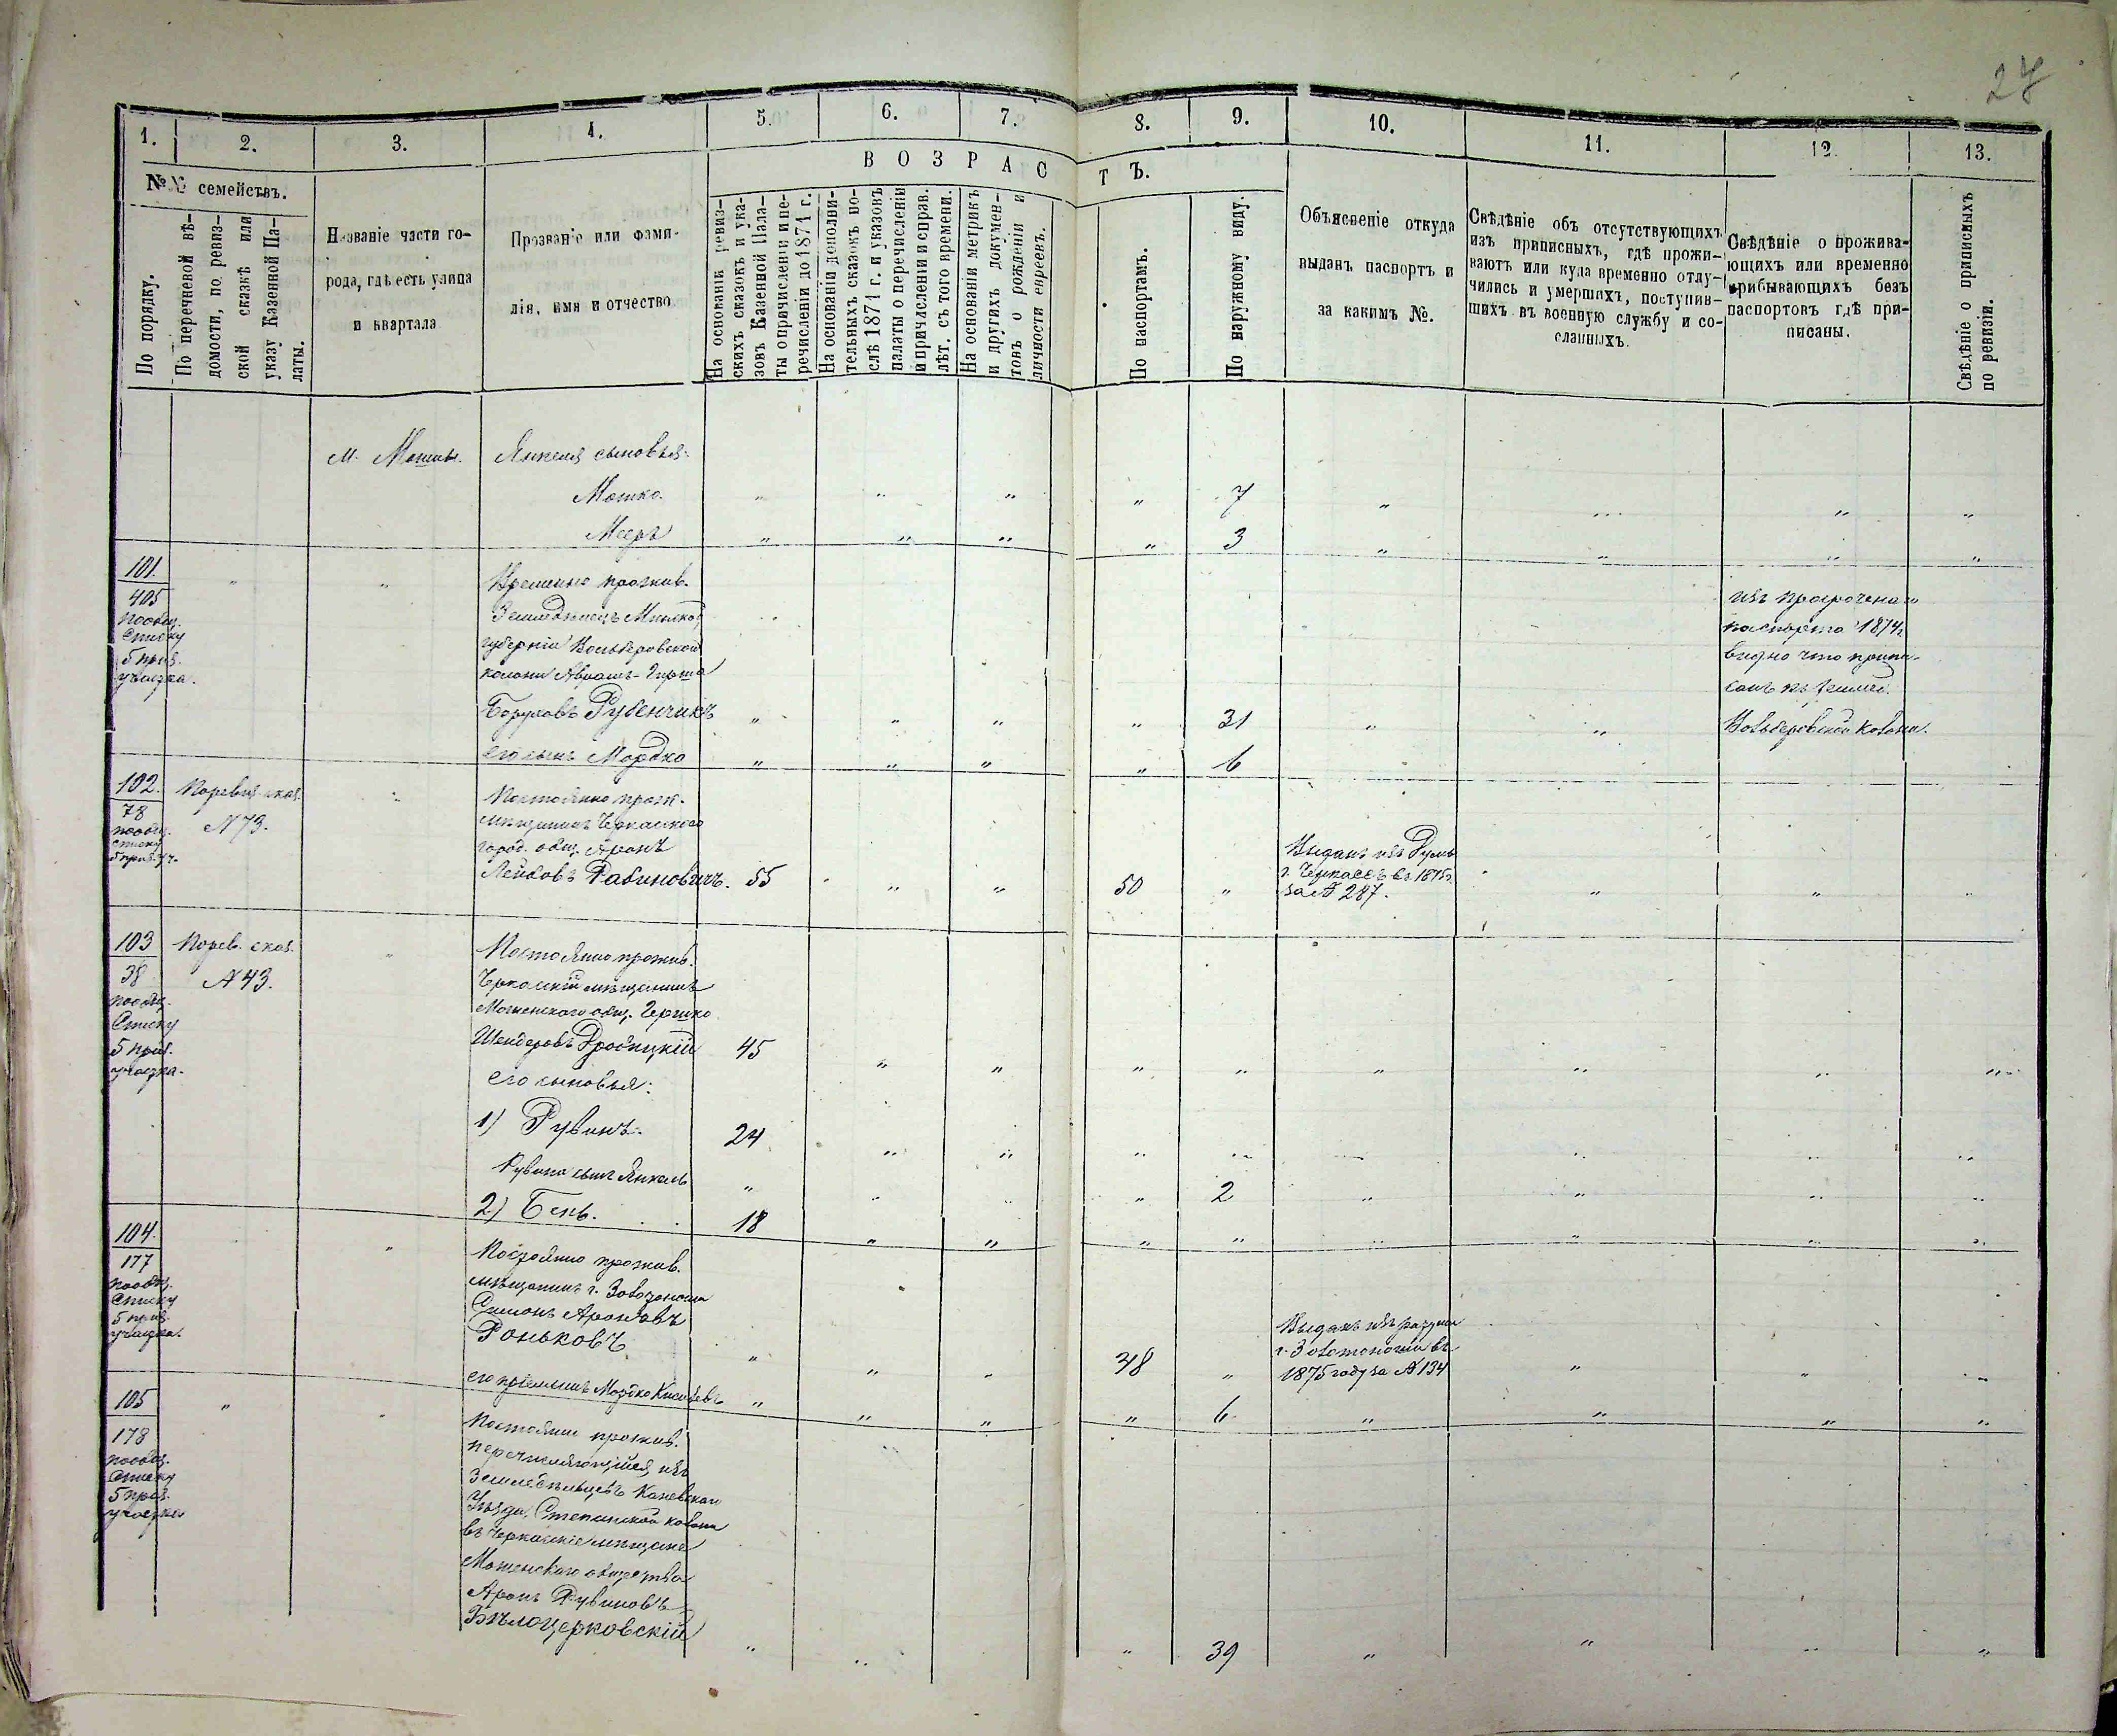 27
1. 2. 3. 4. 5. 6. 7. 8. 9. 10. 11. 12. 13.
№№ семействъ.
По порядку.
По перечневой вѣ-
домости, по ревиз-
ской сказкѣ или
указу Казенной Па-
латы.
Названіе части го-
рода, гдѣ есть улица
и квартала
Прозваніе или фами-
лія, имя и отчество.
ВОЗРАСТЪ.
На основаніи ревиз-
скихъ сказокъ и ука-
зовъ Казенной Пала-
ты о причисленіи и пе-
речисленіи до 1871 г.
На основаніи дополни-
тельныхъ сказокъ по-
слѣ 1871 г. и указовъ
палаты о перечисленіи
и причисленіи и справ.
лѣт. съ того времени.
На основаніи метрикъ
и другихъ докумен-
товъ о рожденіи и
личности евреевъ.
По паспортамъ.
По наружному виду.
Объясненіе откуда
выданъ паспортъ и
за какимъ №.
Свѣдѣніе объ отсутствующихъ
изъ приписныхъ, гдѣ прожи-
ваютъ или куда временно отлу-
чились и умершихъ, поступив-
шихъ въ военную службу и со-
сланныхъ.
Свѣдѣніе о прожива-
ющихъ или временно
прибывающихъ безъ
паспортовъ гдѣ при-
писаны.
Свѣдѣніе о приписныхъ
по ревизіи.
м. Мошны. Янкеля сыновья:
Мошко. " " " " 7 " " " "
Мееръ " " " " 3 " " " "
101. " " Временно прожив.
405
пообщ.
списку
5 приз.
участка.
Земледѣлецъ Минской
губерніи Вольберовской
колоніи Абрамъ-Гирша
Боруховъ Рубенчикъ " " " " 31 " "
изъ просроченаго
паспорта 1874 г.
видно что припи-
санъ къ землед.
Вольберовской колоніи.
его сынъ Мордко " " " " 6
102. По ревиз. сказ. " Постоянно прож.
78 №73. мѣщанинъ Черкаского
пообщ.
списку
5 приз. уч.
город. общ. Аронъ
Лейбовъ Рабиновичъ. 55 " " 50 "
Выданъ изъ Думы
г. Черкасъ въ 1875 г.
за № 287. " " "
103 По рев. сказ. " Постоянно прожив.
38 №43. Черкаскій мѣщанинъ
пообщ.
Списку
5 приз.
участка.
Мошенского общ. Гершко
Шендеровъ Дробицкій 45 " " " " " " " "
его сыновья:
1) Рувинъ. 24 " " " " " " " "
Рувина сынъ Янкель " " " " 2 " " " "
2) Бень. 18 " " " " " " " "
104. " Постоянно прожив.
177
пообщ.
списку
5 приз.
участка.
мѣщанинъ г. Золотоноша
Симонъ Ароновъ
Роньковъ " " " 48 "
Выданъ изъ ратуши
г. Золотоноши въ
1875 году за № 134 " " "
его пріемышъ Мордко " " " " 6 " " " "
105 " " Постоянно прожив.
178
пообщ.
списку
5 приз.
участка
перечисляющійся изъ
земледѣльцевъ Каневскаго
Уѣзда, Степанской колоніи
въ Черкаскіе мѣщане
Мошенскаго общества
Аронъ Рувиновъ
Бѣлоцерковскій " " " 39 " " " "